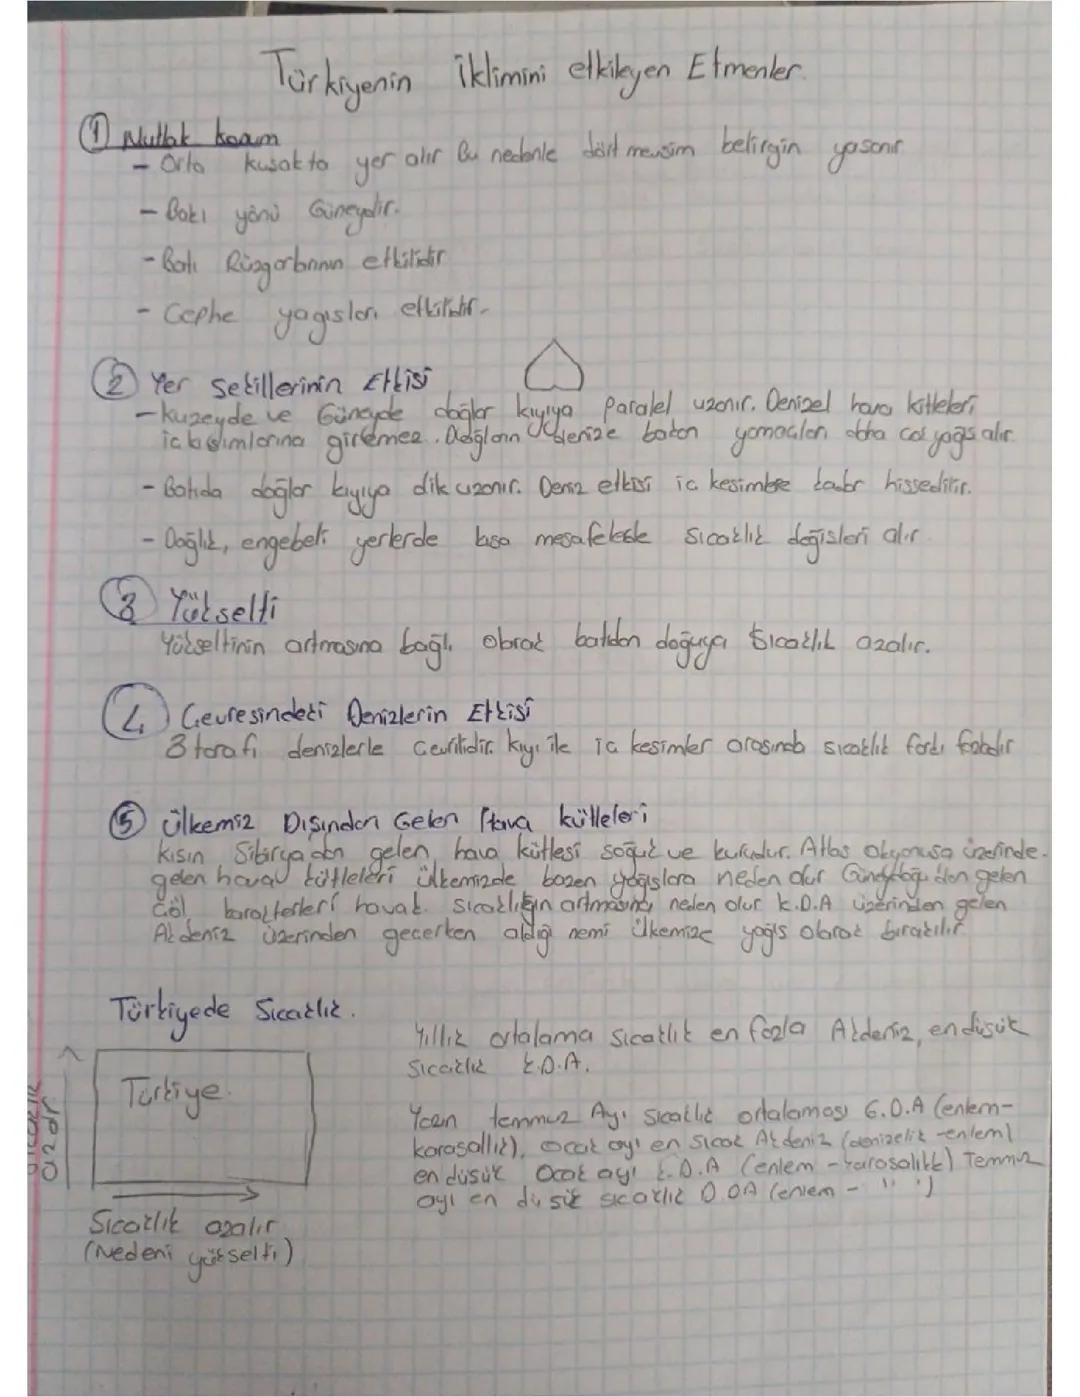 Türkiyenin iklimini etkileyen Etmenler.
① Mutlak konum
- Orta kuşakta yer alır Bu nedenle dört mevsim belirgin yaşanır
- Bakı yönü Güneydir.
- Batı Rüzgarlarının etkilidir
- Cephe yağışları etkilidir.
② Yer şekillerinin Etkisi
- Kuzeyde ve Güneyde dağlar kıyıya paralel uzanır. Denizel hava kitleleri
iç kısımlarına giremez. Dağların denize bakan yamaçları daha çok yağış alır.
- Batıda dağlar kıyıya dik uzanır. Deniz etkisi iç kesimlere kadar hissedilir.
- Dağlık, engebeli yerlerde kısa mesafelerde sıcaklık değişleri alır.
③ Yükselti
Yükseltinin artmasına bağlı olarak batıdan doğuya sıcaklık azalır.
④ Çevresindeki Denizlerin Etkisi
3 tarafı denizlerle çevrilidir. kıyı ile iç kesimler arasında sıcaklık farkı fazladır
⑤ ülkemiz Dışından Gelen Hava kütleleri
kışın Sibirya'dan gelen hava kütlesi soğuk ve kurudur. Atlas Okyonusu üzerinde.
gelen hava kütleleri ülkemizde bazen yağışlara neden olur Güneydoğu'dan gelen
Çöl karakterleri havalı sıcaklığın artmasına neden olur K.D.A üzerinden gelen
Akdeniz üzerinden geçerken aldığı nemi ülkemize yağış olarak bırakılır
Türkiyede Sıcaklık.
Yıllık ortalama sıcaklık en fazla Akdeniz, en düşük
sıcaklık K.D.A.
Türkiye.
Sıcaklık
azalır
Yazın temmuz Ayı sıcaklık ortalaması G.D.A (enlem-
karasallık), ocak ayı en sıcak Akdeniz (denizellik -enlem)
en düşük Ocak ayı K.D.A (enlem -karasallık) Temmuz
ayı en düşük sıcaklık D.DA (enlem - " ")
Sıcaklık azalır
(Nedeni yükselti)